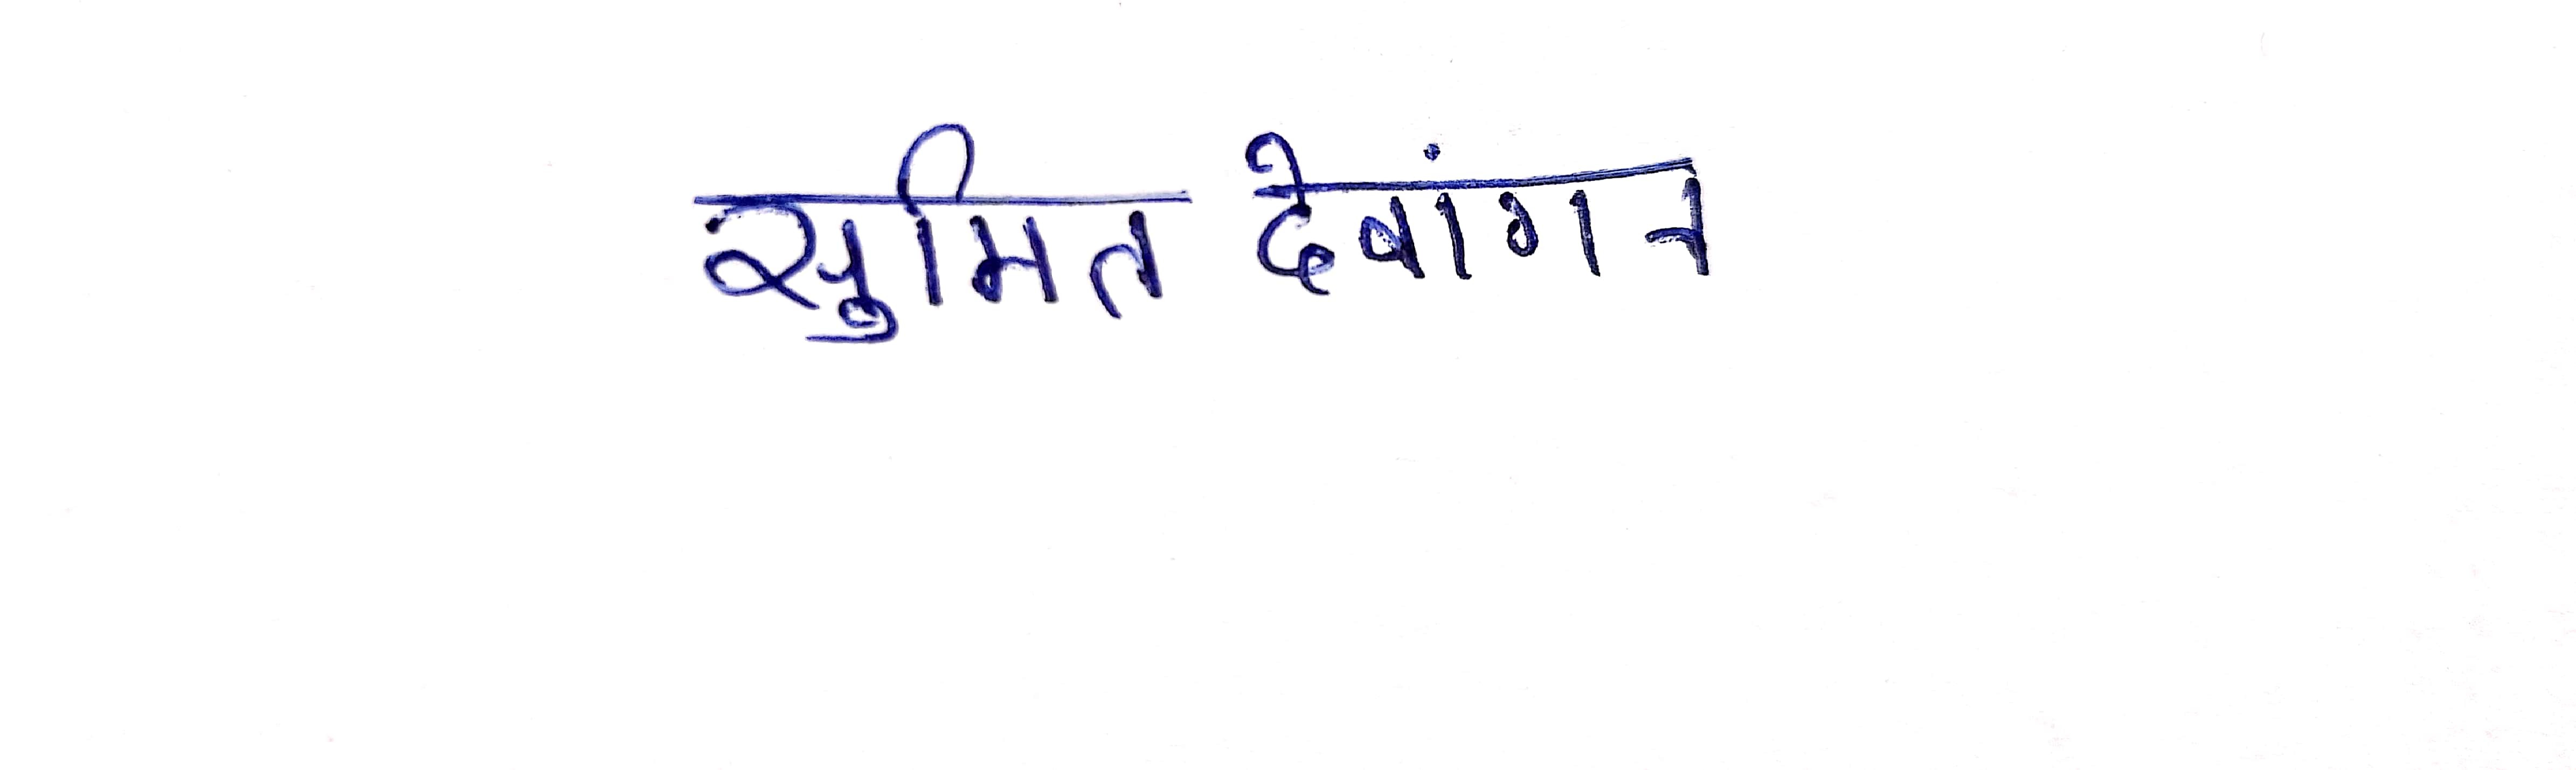 सुमित देवांगन